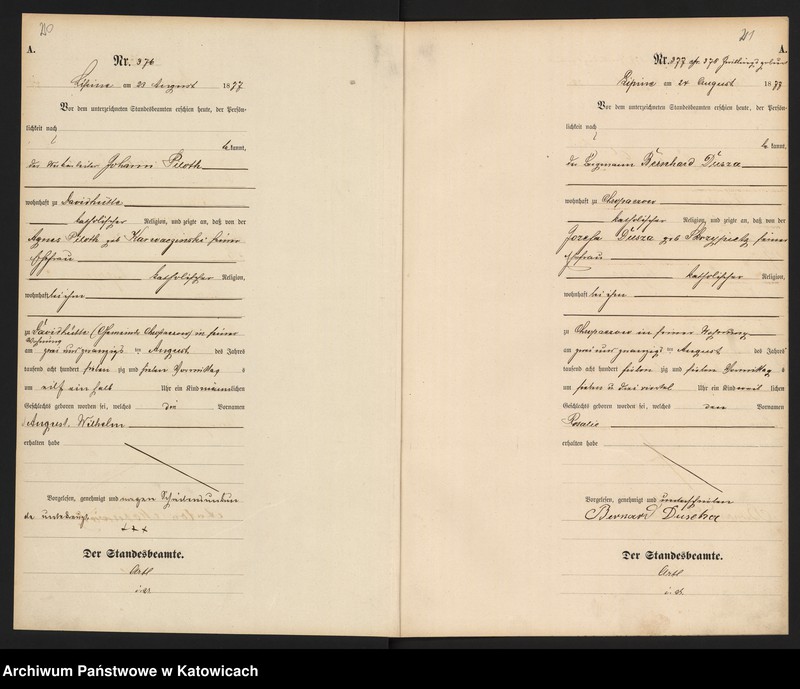 210
A.
Nr. 376
Lipine am 23 August 1877
Vor dem unterzeichneten Standesbeamten erschien heute, der Persön-
lichkeit nach
be kannt,
der Johann Piloth
wohnhaft zu Davidhütte
katholischer Religion, und zeigte an, daß von der
Agnes Piloth geb seiner
Ehefrau
katholischer Religion,
wohnhaft bei ihm
zu Davidhütte (Gemeinde Chropaczow) in seiner
Wohnung
am zwei und zwanzigs ten August des Jahres
tausend acht hundert sieben zig und sieben Vormittag s
um elf ein halb Uhr ein Kind männ lichen
Geschlechts geboren worden sei, welches die Vornamen
August Wilhelm
erhalten habe
Vorgelesen, genehmigt und wegen Schreibensunkun
de unterkreuzt
+++
Der Standesbeamte.
211
A.
Nr. 377 cfr. 378 Zwillingsgeburt
Lipine am 24 August 1877
Vor dem unterzeichneten Standesbeamten erschien heute, der Persön-
lichkeit nach
be kannt,
der Bergmann Bernhard Dusza
wohnhaft zu Chropaczow
katholischer Religion, und zeigte an, daß von der
Josefa Dusza geb Skrzypietz seiner
Ehefrau
katholischer Religion,
wohnhaft bei ihm
zu Chropaczow in seiner Wohnung
am zwei und zwanzigs ten August des Jahres
tausend acht hundert sieben zig und sieben Vormittag s
um sieben u drei viertel Uhr ein Kind weib lichen
Geschlechts geboren worden sei, welches den Vornamen
Rosalie
erhalten habe
Vorgelesen, genehmigt und unterschrieben
Bernard Duscha
Der Standesbeamte.
Archiwum Państwowe w Katowicach